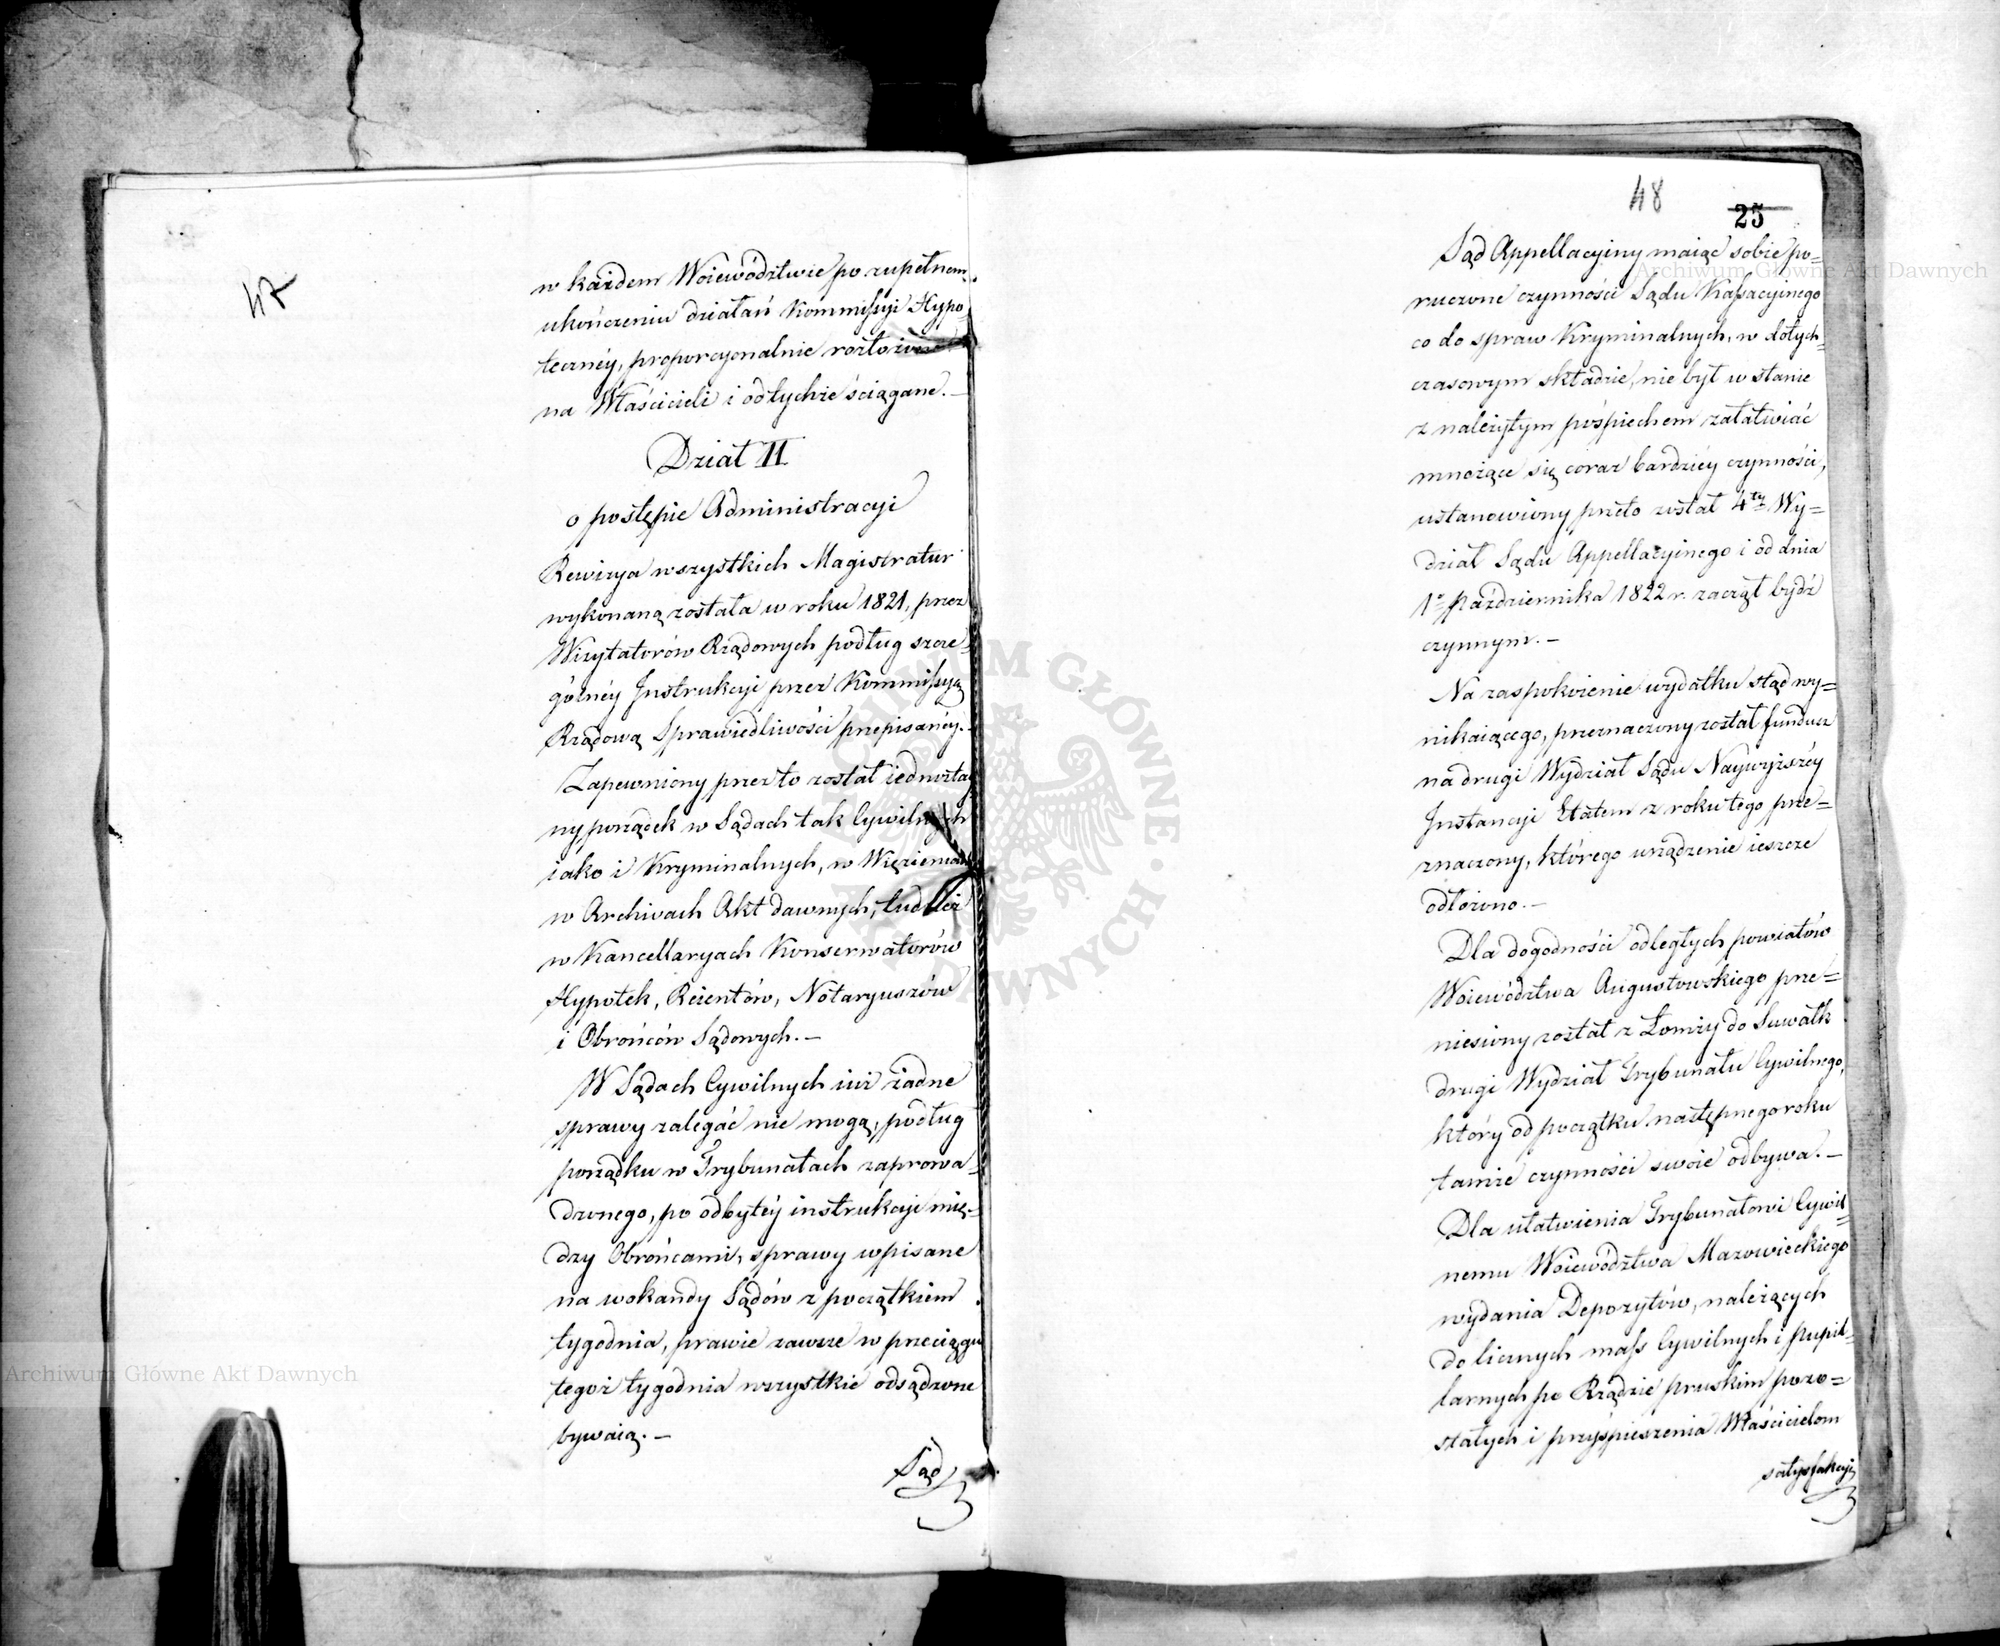 47
w każdem Woiewództwie po zupełnem
ukończeniu działań Kommissyi Hypo-
teczney, proporcyonalnie rozłożone
na Właścicieli i od tychże ściągane. —
Dział II
o postępie Administracyi
Rewizya wszystkich Magistratur
wykonaną została w roku 1821, przez
Wizytatorów Rządowych podług szcze-
gólney Instrukcyi przez Kommissyą
Rządową Sprawiedliwości przepisanéy. -
Zapewniony przez to został iednostay
ny porządek w Sądach tak Cywilnych
iako i Kryminalnych, w Więzieniach
w Archivach Akt dawnych, tudzież
w Kancellaryach Konserwatorów
Hypotek, Reientów, Notaryuszów
i Obrońców Sądowych. —
W Sądach Cywilnych iuż żadne
sprawy zalegać nie mogą, podług
porządku w Trybunałach zaprowa-
dzonego, po odbytéy instrukcyi mię-
dzy Obrońcami, sprawy wpisane
na wokandy Sądów z początkiem
tygodnia, prawie zawsze w przeciągu
tegoż tygodnia wszystkie odsądzone
bywaią. —
Sąd
48
25
Sąd Appellacyiny maiąc sobie po=
ruczone czynności Sądu Kassacyinego
co do spraw Kryminalnych, w dotych=
czasowym składzie, nie był w stanie
z należytym pośpiechem załatwiać
mnożące się coraz bardziéy czynności,
ustanowiony przeto został 4ty Wy=
dział Sądu Appellacyinego i od dnia
1o Października 1822 r. zaczął bydź
czynnym. —
Na zaspokoienie wydatku stąd wy=
nikaiącego, przeznaczony został fundusz
na drugi Wydział Sądu Naywyższéy
Instancyi Etatem z roku tego prze=
znaczony, którego urządzenie ieszcze
odłożono. —
Dla dogodności odległych powiatów
Woiewództwa Augustowskiego prze=
niesiony został z Łomży do Suwałk
drugi Wydział Trybunału Cywilnego,
który od początku następnego roku
tamże czynności swoie odbywa. —
Dla ułatwienia Trybunałowi Cywil=
nemu Woiewództwa Mazowieckiego
wydania Depozytów, należących
do licznych mass Cywilnych i pupil=
larnych po Rządzie pruskim pozo=
stałych i przyspieszenia Właścicielom
satysfakcyi
Archiwum Główne Akt Dawnych
Archiwum Główne Akt Dawnych
ARCHIWUM GŁÓWNE AKT DAWNYCH